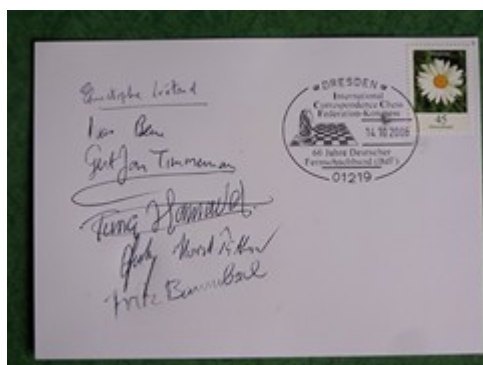 Ivar Bern
Gert Jan Timmerman
Tunç Hamarat
Horst Rittner
Fritz Baumbach
DRESDEN
International
Correspondence Chess
Federation-Kongress
14.10.2006
60 Jahre Deutscher
Fernschachbund (BdF)
01219
45